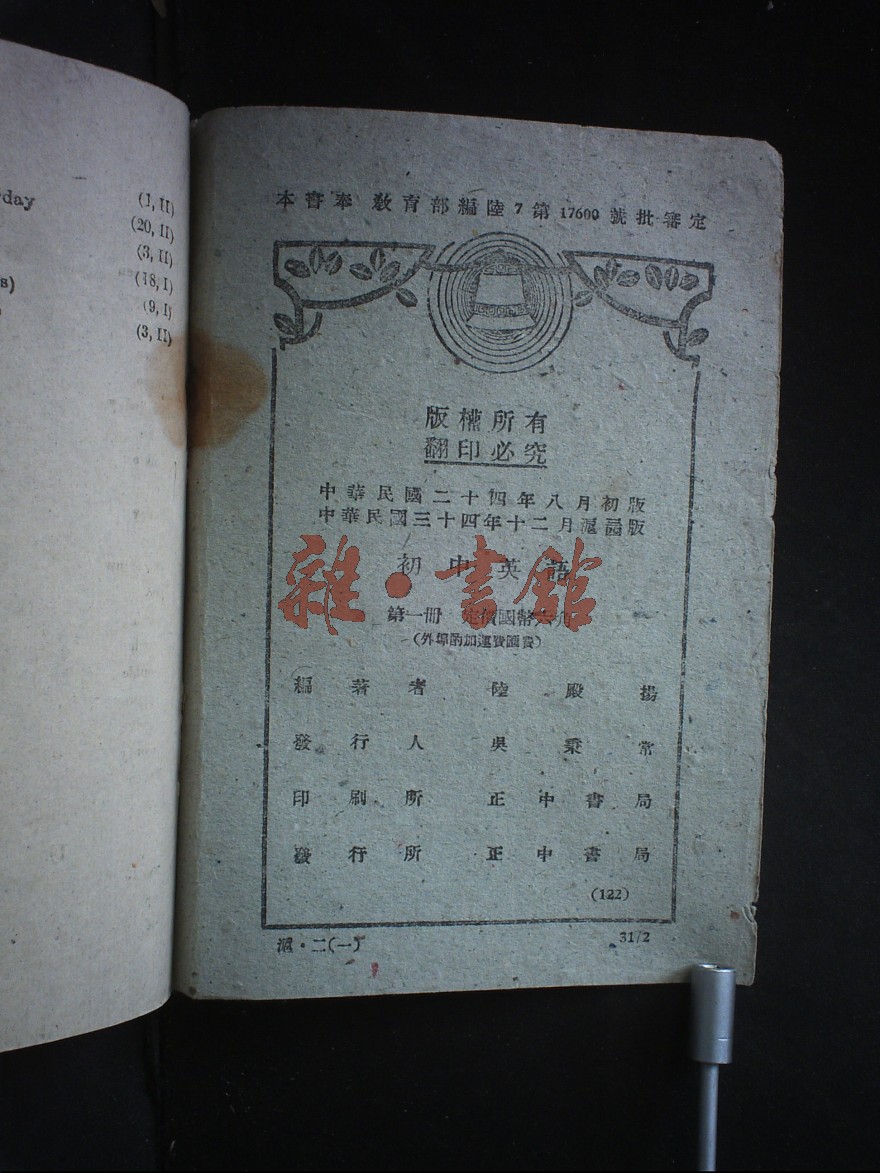 day
(1, II)
(20, II)
(3, II)
s)
(18, I)
(9, I)
(3, II)
本書奉 教育部編陸7第17600號批審定
版權所有
翻印必究
中華民國二十四年八月初版
中華民國三十四年十二月滬版
初中英語
雜·書館
第一冊 定價國幣
(外埠酌加運費匯費)
編著者 陸殿揚
發行人 吳秉常
印刷所 正中書局
發行所 正中書局
(122)
滬·二(一)
31/2